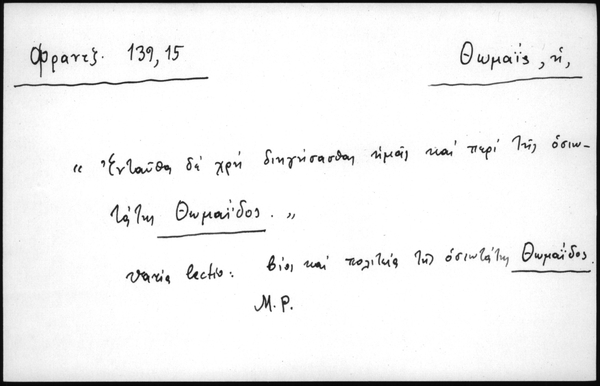 Φραντζ. 139,15
Θωμαΐς, ἡ,
« Ἐνταῦθα δὲ χρὴ διηγήσασθαι ἡμᾶς καὶ περὶ τῆς ὁσιω-
τάτης Θωμαΐδος. »
varia lectio: βίος καὶ πολιτεία τῆς ὁσιωτάτης Θωμαΐδος.
M.P.